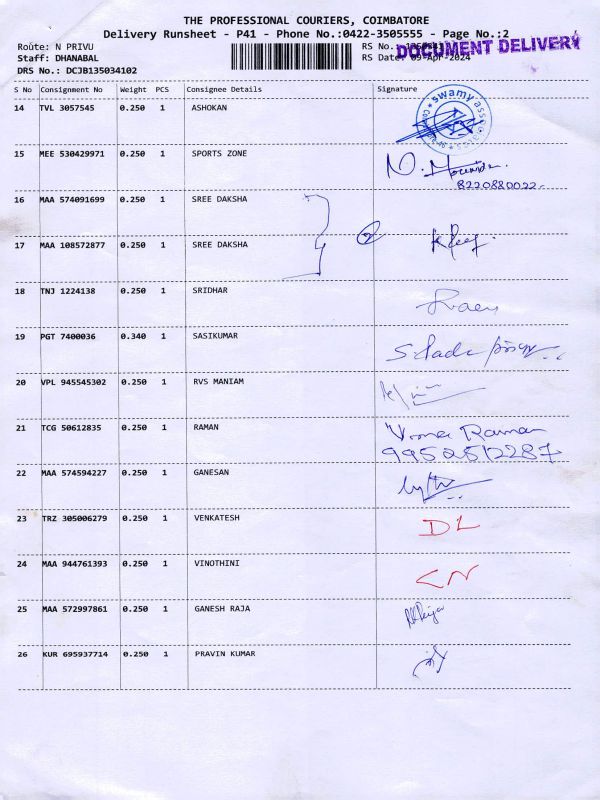 THE PROFESSIONAL COURIERS, COIMBATORE
Delivery Runsheet - P41 - Phone No.:0422-3505555 - Page No.:2
Route: N PRIVU
RS No.:
DOCUMENT DELIVERY
Staff: DHANABAL
RS Date: 09-Apr-2024
DRS No.: DCJB135034102
S No Consignment No Weight PCS Consignee Details Signature
14 TVL 3057545 0.250 1 ASHOKAN
swamy
15 MEE 530429971 0.250 1 SPORTS ZONE
8220880022
16 MAA 574091699 0.250 1 SREE DAKSHA
17 MAA 108572877 0.250 1 SREE DAKSHA
18 TNJ 1224138 0.250 1 SRIDHAR
19 PGT 7400036 0.340 1 SASIKUMAR
20 VPL 945545302 0.250 1 RVS MANIAM
21 TCG 50612835 0.250 1 RAMAN Raman
9952512287
22 MAA 574594227 0.250 1 GANESAN
23 TRZ 305006279 0.250 1 VENKATESH DL
24 MAA 944761393 0.250 1 VINOTHINI CN
25 MAA 572997861 0.250 1 GANESH RAJA
26 KUR 695937714 0.250 1 PRAVIN KUMAR